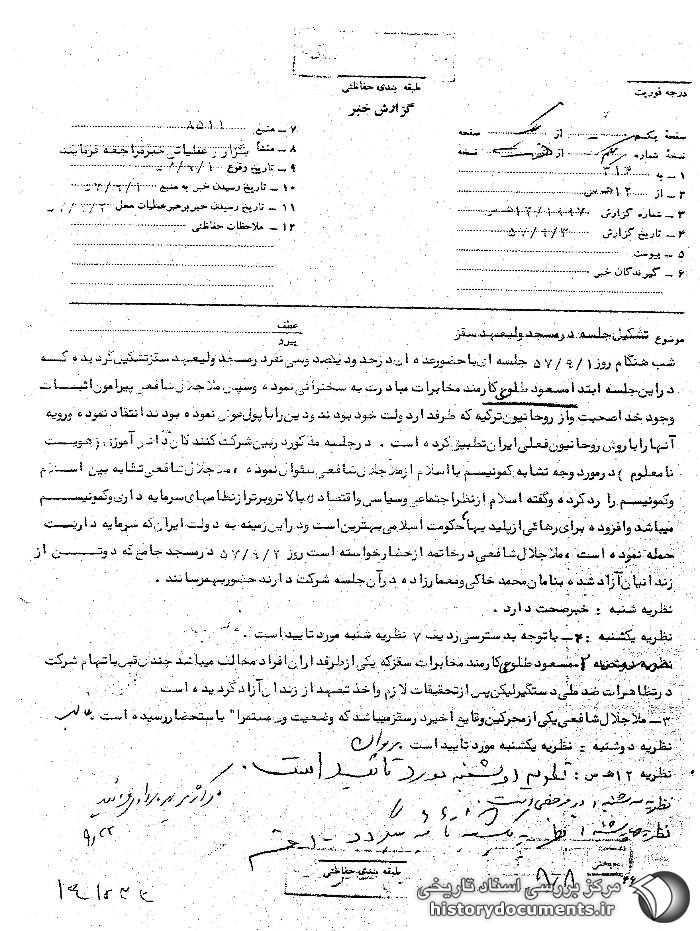 طبقه بندی حفاظتی
گزارش خبر
درجه فوریت
صفحه یکم از صفحه
نسخه شماره از نسخه
۱ – به ۳۱۲
۲ – از ۱۲ ه‍ س
۳ – شماره گزارش ۱۲/۱۹۹۷ ه‍ س
۴ – تاریخ گزارش ۵۷/۹/۳
۵ – پیوست
۶ – گیرندگان خبر
۷ – منبع ۸۵۱۱
۸ – منشأ
۹ – تاریخ وقوع
۱۰ – تاریخ رسیدن خبر به منبع
۱۱ – تاریخ رسیدن خبر برهبر عملیات محل
۱۲ – ملاحظات حفاظتی
موضوع تشکیل جلسه در مسجد ولیعهد سقز
عطف
پیرو
شب هنگام روز ۵۷/۹/۱ جلسه ای با حضور عده ای در حدود یکصد و سی نفر در مسجد ولیعهد سقز تشکیل گردیده که
در این جلسه ابتدا مسعود طلوعی کارمند مخابرات مبادرت به سخنرانی نموده و سپس ملا جلال شافعی پیرامون اثبات
وجود خدا صحبت و از روحانیون ترکیه که طرفدار دولت خود بودند و دین را با پول عوض نموده بودند انتقاد نموده و رویه
آنها را با روش روحانیون فعلی ایران تطبیق کرده است . در جلسه مذکور در بین شرکت کنندگان دانش آموزی ( هویت
نامعلوم ) در مورد وجه تشابه کمونیسم با اسلام از ملا جلال شافعی سئوال نموده ، ملا جلال شافعی تشابه بین اسلام
و کمونیسم را رد کرده و گفته اسلام از نظر اجتماعی و سیاسی و اقتصادی بالاتر و برتر از نظامهای سرمایه داری و کمونیسم
میباشد و افزوده برای رهائی از پلیدیها حکومت اسلامی بهترین است و در این زمینه به دولت ایران که سرمایه داریست
حمله نموده است ، ملا جلال شافعی در خاتمه از حضار خواسته است روز ۵۷/۹/۲ در مسجد جامع که دو تن از
زندانیان آزاد شده بنامان محمد خاکی و معمارزاده در آن جلسه شرکت دارند حضور بهمرسانند .
نظریه شنبه : خبر صحت دارد .
نظریه یکشنبه : با توجه به دسترسی ردیف ۷ نظریه شنبه مورد تایید است .
۲– مسعود طلوعی کارمند مخابرات سقز که یکی از طرفداران افراد مخالف میباشد چندی قبل باتهام شرکت
در تظاهرات ضد ملی دستگیر لیکن پس از تحقیقات لازم و اخذ تعهد از زندان آزاد گردیده است
۳– ملا جلال شافعی یکی از محرکین وقایع اخیر در سقز میباشد که وضعیت وی مستمرا" باستحضار رسیده است
نظریه دوشنبه : نظریه یکشنبه مورد تایید است
نظریه ۱۲ ه‍ س : نظریه دوشنبه مورد تائید است .
نظریه سه شنبه :
نظریه چهارشنبه : نظریه یکشنبه تائید میگردد
۹/۲۲
طبقه بندی حفاظتی
مرکز بررسی اسناد تاریخی
historydocuments.ir